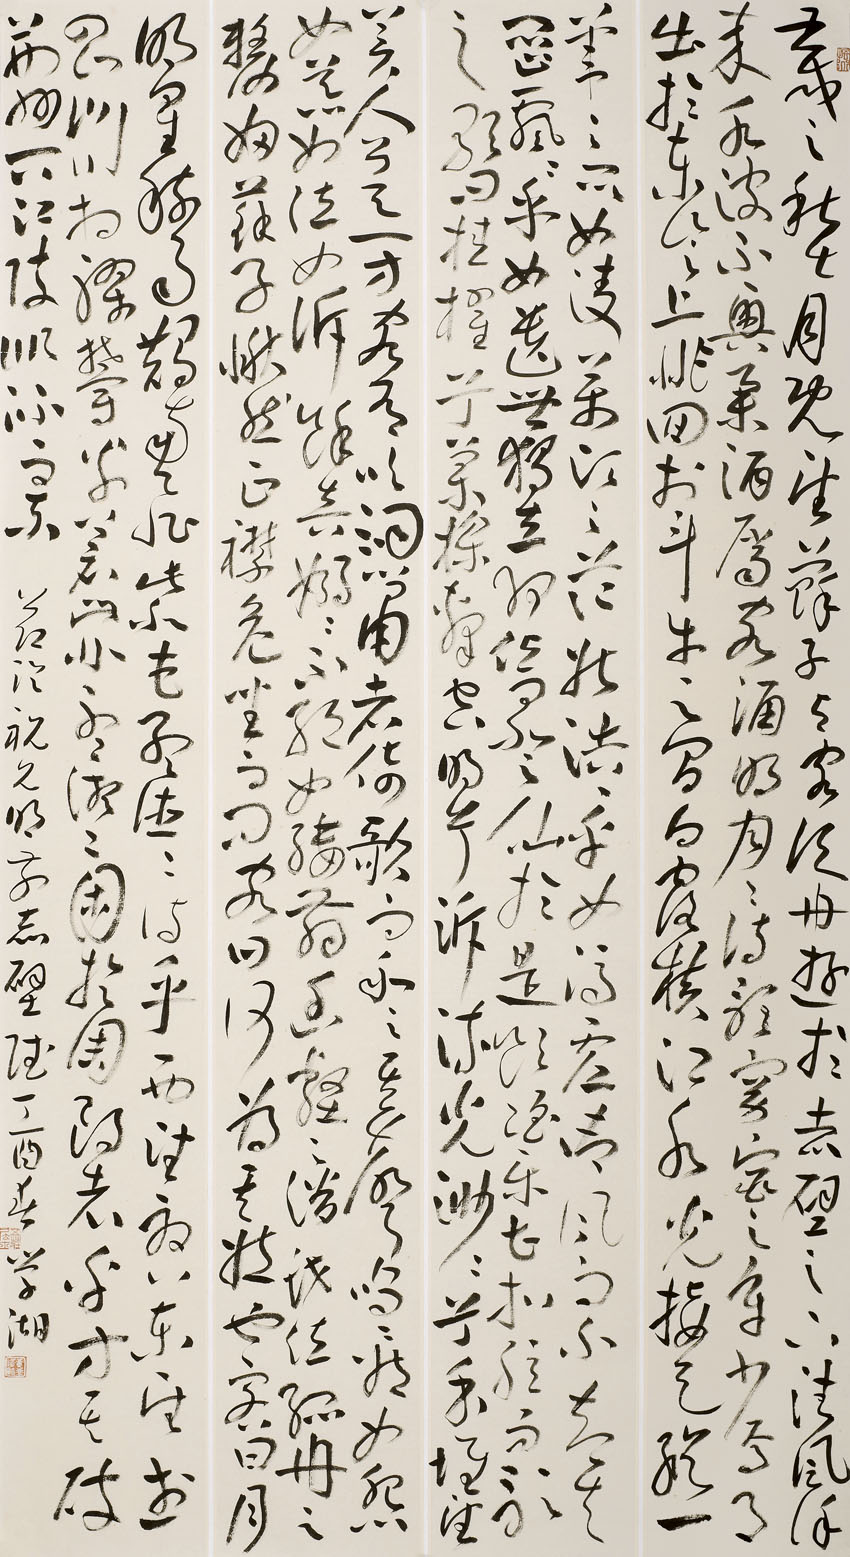 壬戌之秋七月既望蘇子与客泛舟遊於赤壁之下清風徐
来水波不興舉酒屬客誦明月之詩歌窈窕之章少焉月
出於東山之上徘徊於斗牛之間白露橫江水光接天縱一
葦之所如凌萬頃之茫然浩浩乎如馮虛御風而不知其
所止飄飄乎如遺世獨立羽化而登仙於是飲酒樂甚扣舷而歌
之歌曰桂櫂兮蘭槳擊空明兮泝流光渺渺兮予懷望
美人兮天一方客有吹洞簫者倚歌而和之其聲嗚嗚然如怨
如慕如泣如訴餘音嫋嫋不絕如縷舞幽壑之潛蛟泣孤舟之
嫠婦蘇子愀然正襟危坐而問客曰何為其然也客曰月
明星稀烏鵲南飛此非孟德之詩乎西望夏口東望武
昌山川相繆鬱乎蒼蒼此非孟德之困於周郎者乎方其破
荊州下江陵順流而東 節臨祝允明前赤壁賦丁酉春 学湖